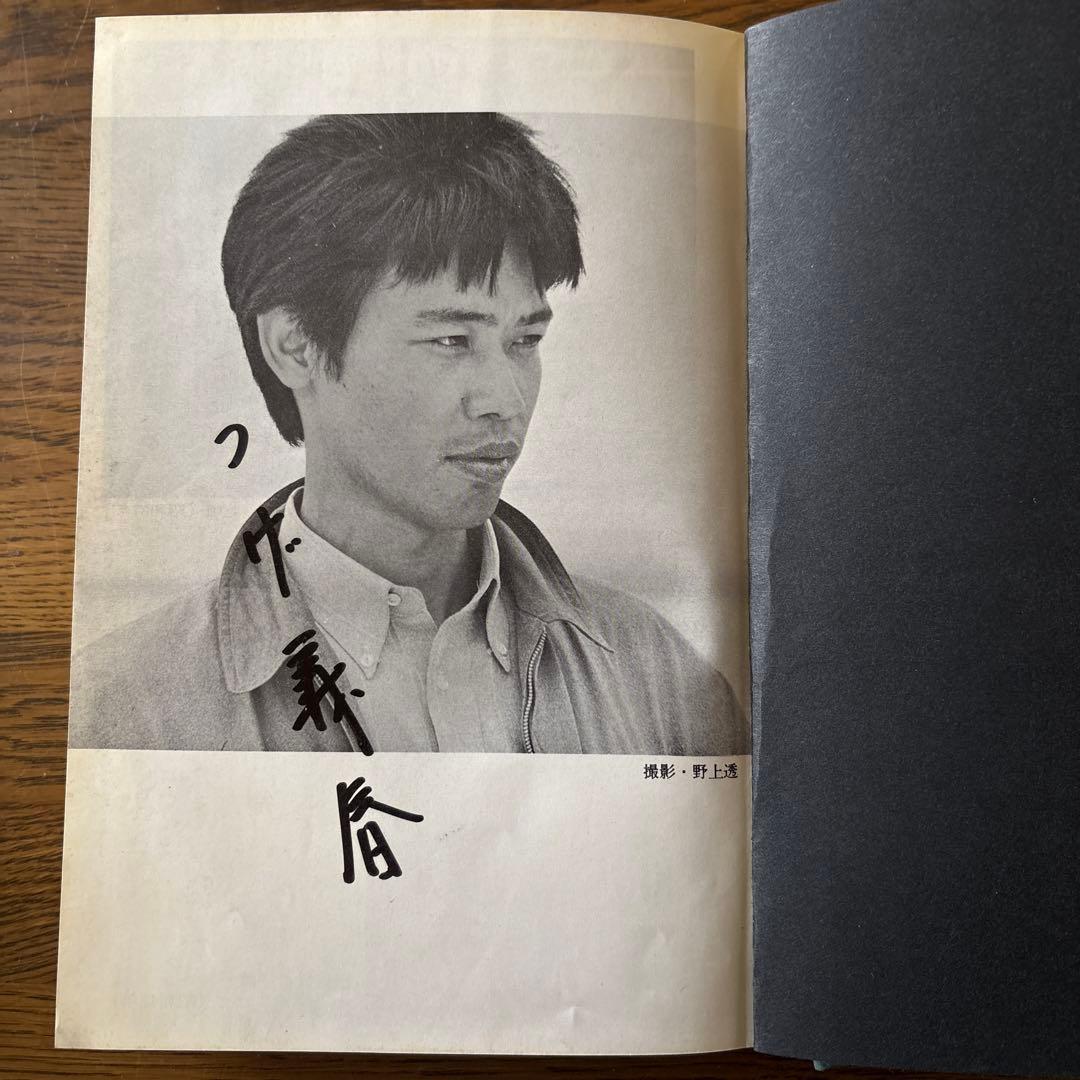 つげ義春
撮影・野上透